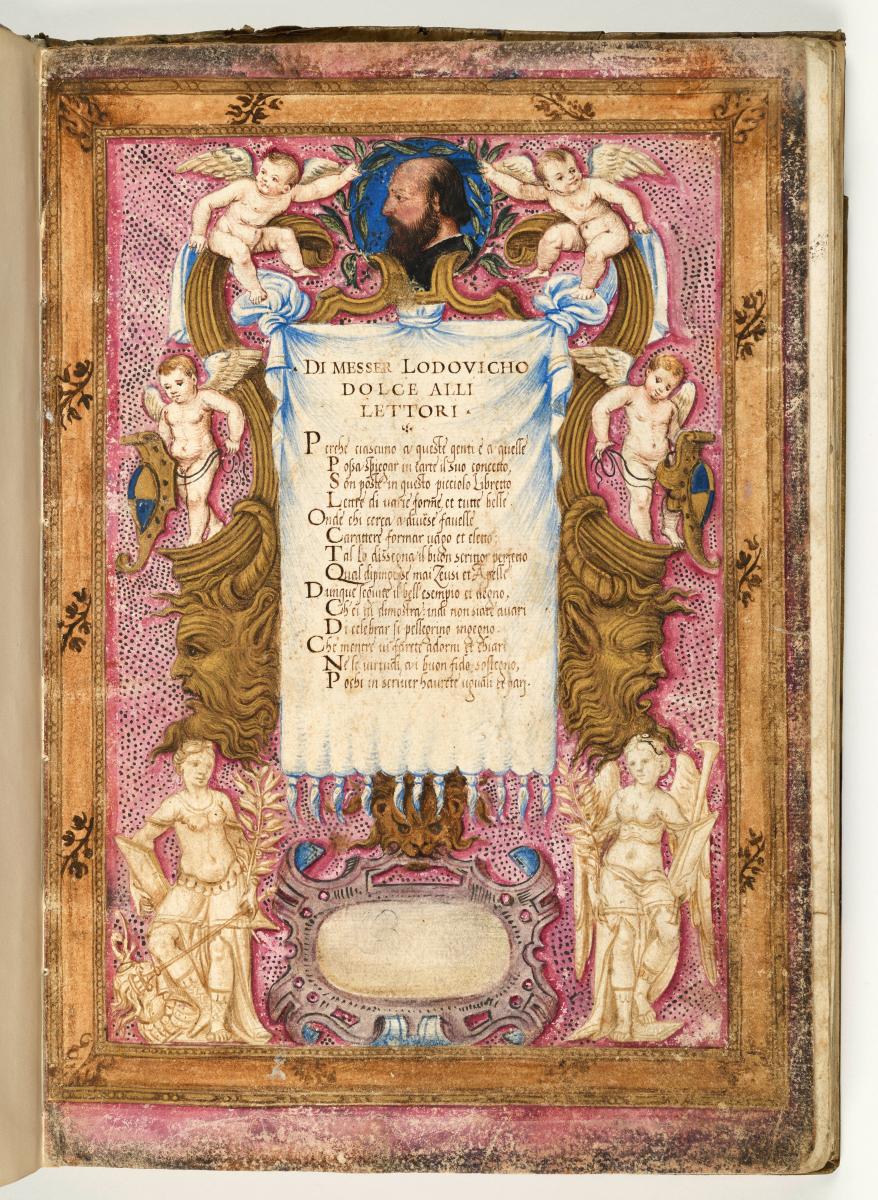 DI MESSER LODOVICHO
DOLCE ALLI
LETTORI
Perche ciascuno a queste genti è a quelle
Possa spiegar in carte il suo concetto,
Son poste in questo picciolo Libretto
Lettre di varie forme, et tutte belle.
Onde chi cerca a diverse favelle
Carattere formar vago et eletto;
Tal lo dissegna il buon scrittor perfetto
Qual dipinger se mai Zeusi et Apelle
Dunque seguite il bell'esempio et degno,
Ch'ei vi dimostra; indi non siate avari
Di celebrar si pellegrino ingegno.
Che mentre vi farete adorni et chiari
Ne le virtudi, a i buon fido sostegno,
Pochi in scriver havrete uguali et pari.